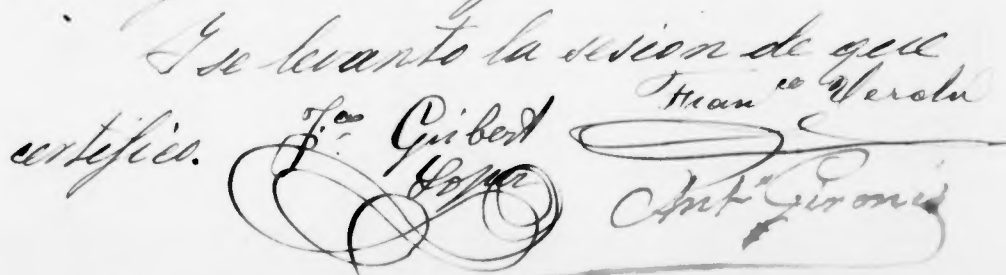 Y se levanto la sesion de que
certifico.
F.co Gisbert
Franco Verdu
Anto Gironés